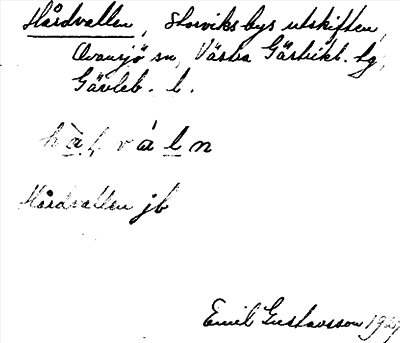 Hårdvallen, Storviksbys utskiften,
Ovansjö sn, Västra Gästrikl. tg,
Gävleb. l.
Hårdvallen jb
Emil Gustavsson